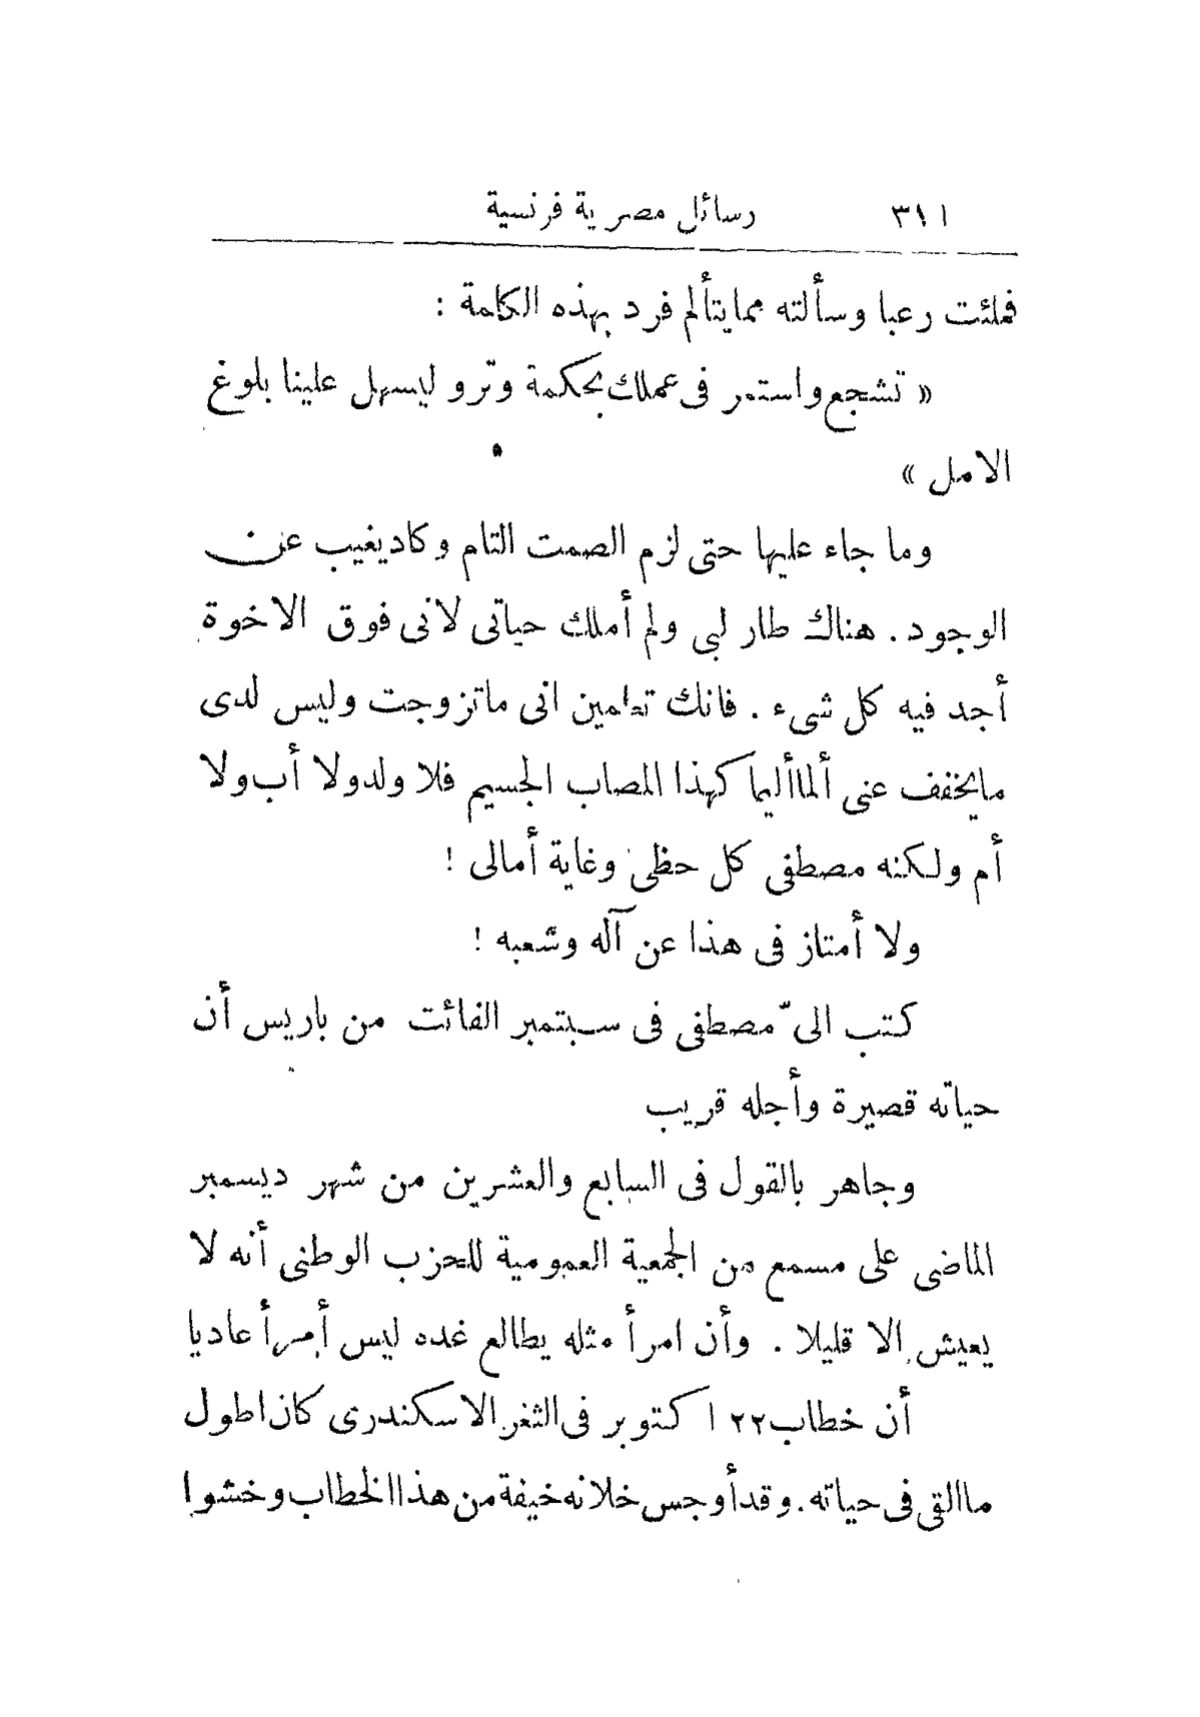 ٣١١ رسائل مصرية فرنسية
فملئت رعبا وسألته مما يتألم فرد بهذه الكلمة :
« تشجع واستمر فى عملك بحكمة وترو ليسهل علينا بلوغ
الامل »
وما جاء عليها حتى لزم الصمت التام وكاد يغيب عن
الوجود . هناك طار لبى ولم أملك حياتى لانى فوق الاخوة
أجد فيه كل شىء . فانك تعلمين انى ماتزوجت وليس لدى
مايخفف عنى ألما أليما كهذا المصاب الجسيم فلا ولد ولا أب ولا
أم ولكنه مصطفى كل حظى وغاية أمالى !
ولا أمتاز فى هذا عن آله وشعبه !
كتب الىّ مصطفى فى سبتمبر الفائت من باريس أن
حياته قصيرة وأجله قريب
وجاهر بالقول فى السابع والعشرين من شهر ديسمبر
الماضى على مسمع من الجمعية العمومية للحزب الوطنى أنه لا
يعيش الا قليلا . وأن امرأ مثله يطالع غده ليس أمرأ عاديا
أن خطاب ٢٢ اكتوبر فى الثغر الاسكندرى كان اطول
ما القى فى حياته . وقد أوجس خلانه خيفة من هذا الخطاب وخشوا